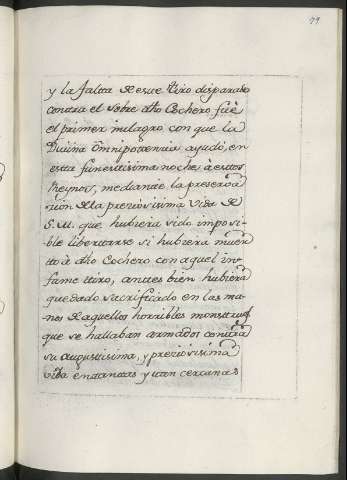 99
y la falta de este tiro disparado
contra el sobre dho Cochero, fuè
el primer milagro con que la
Divina Omnipotencia ayudó, en
esta funestisima noche à estos
Reynos, mediante la preserva
cion de la preciosisima vida de
S. M. que hubiera sido imposi-
ble libertarse si hubiera muer
to à dho Cochero con aquel in-
fame tiro, antes bien hubiera
quedado sacrificado en las ma-
nos de aquellos horribles monstruos
que se hallaban armados contra
su augustisima, y preciosisima
vida en tantas y tan cercanas